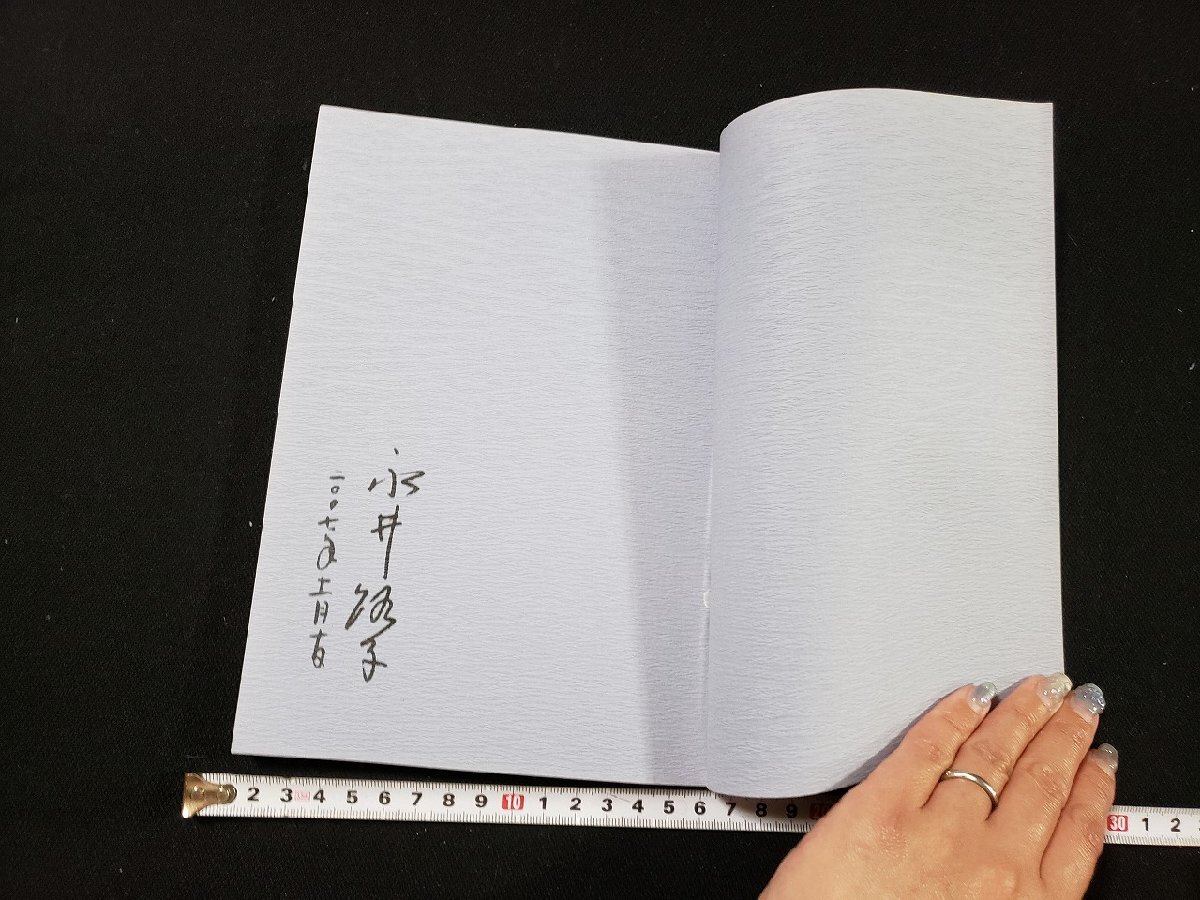 永井路子
二〇〇七年十一月十五日
2 3 4 5 6 7 8 9 10 1 2 3 4 5 6 7 8 9 30 1 2